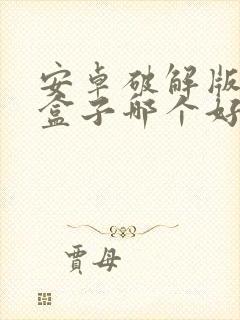 安卓破解版
盒子哪个好
贾母